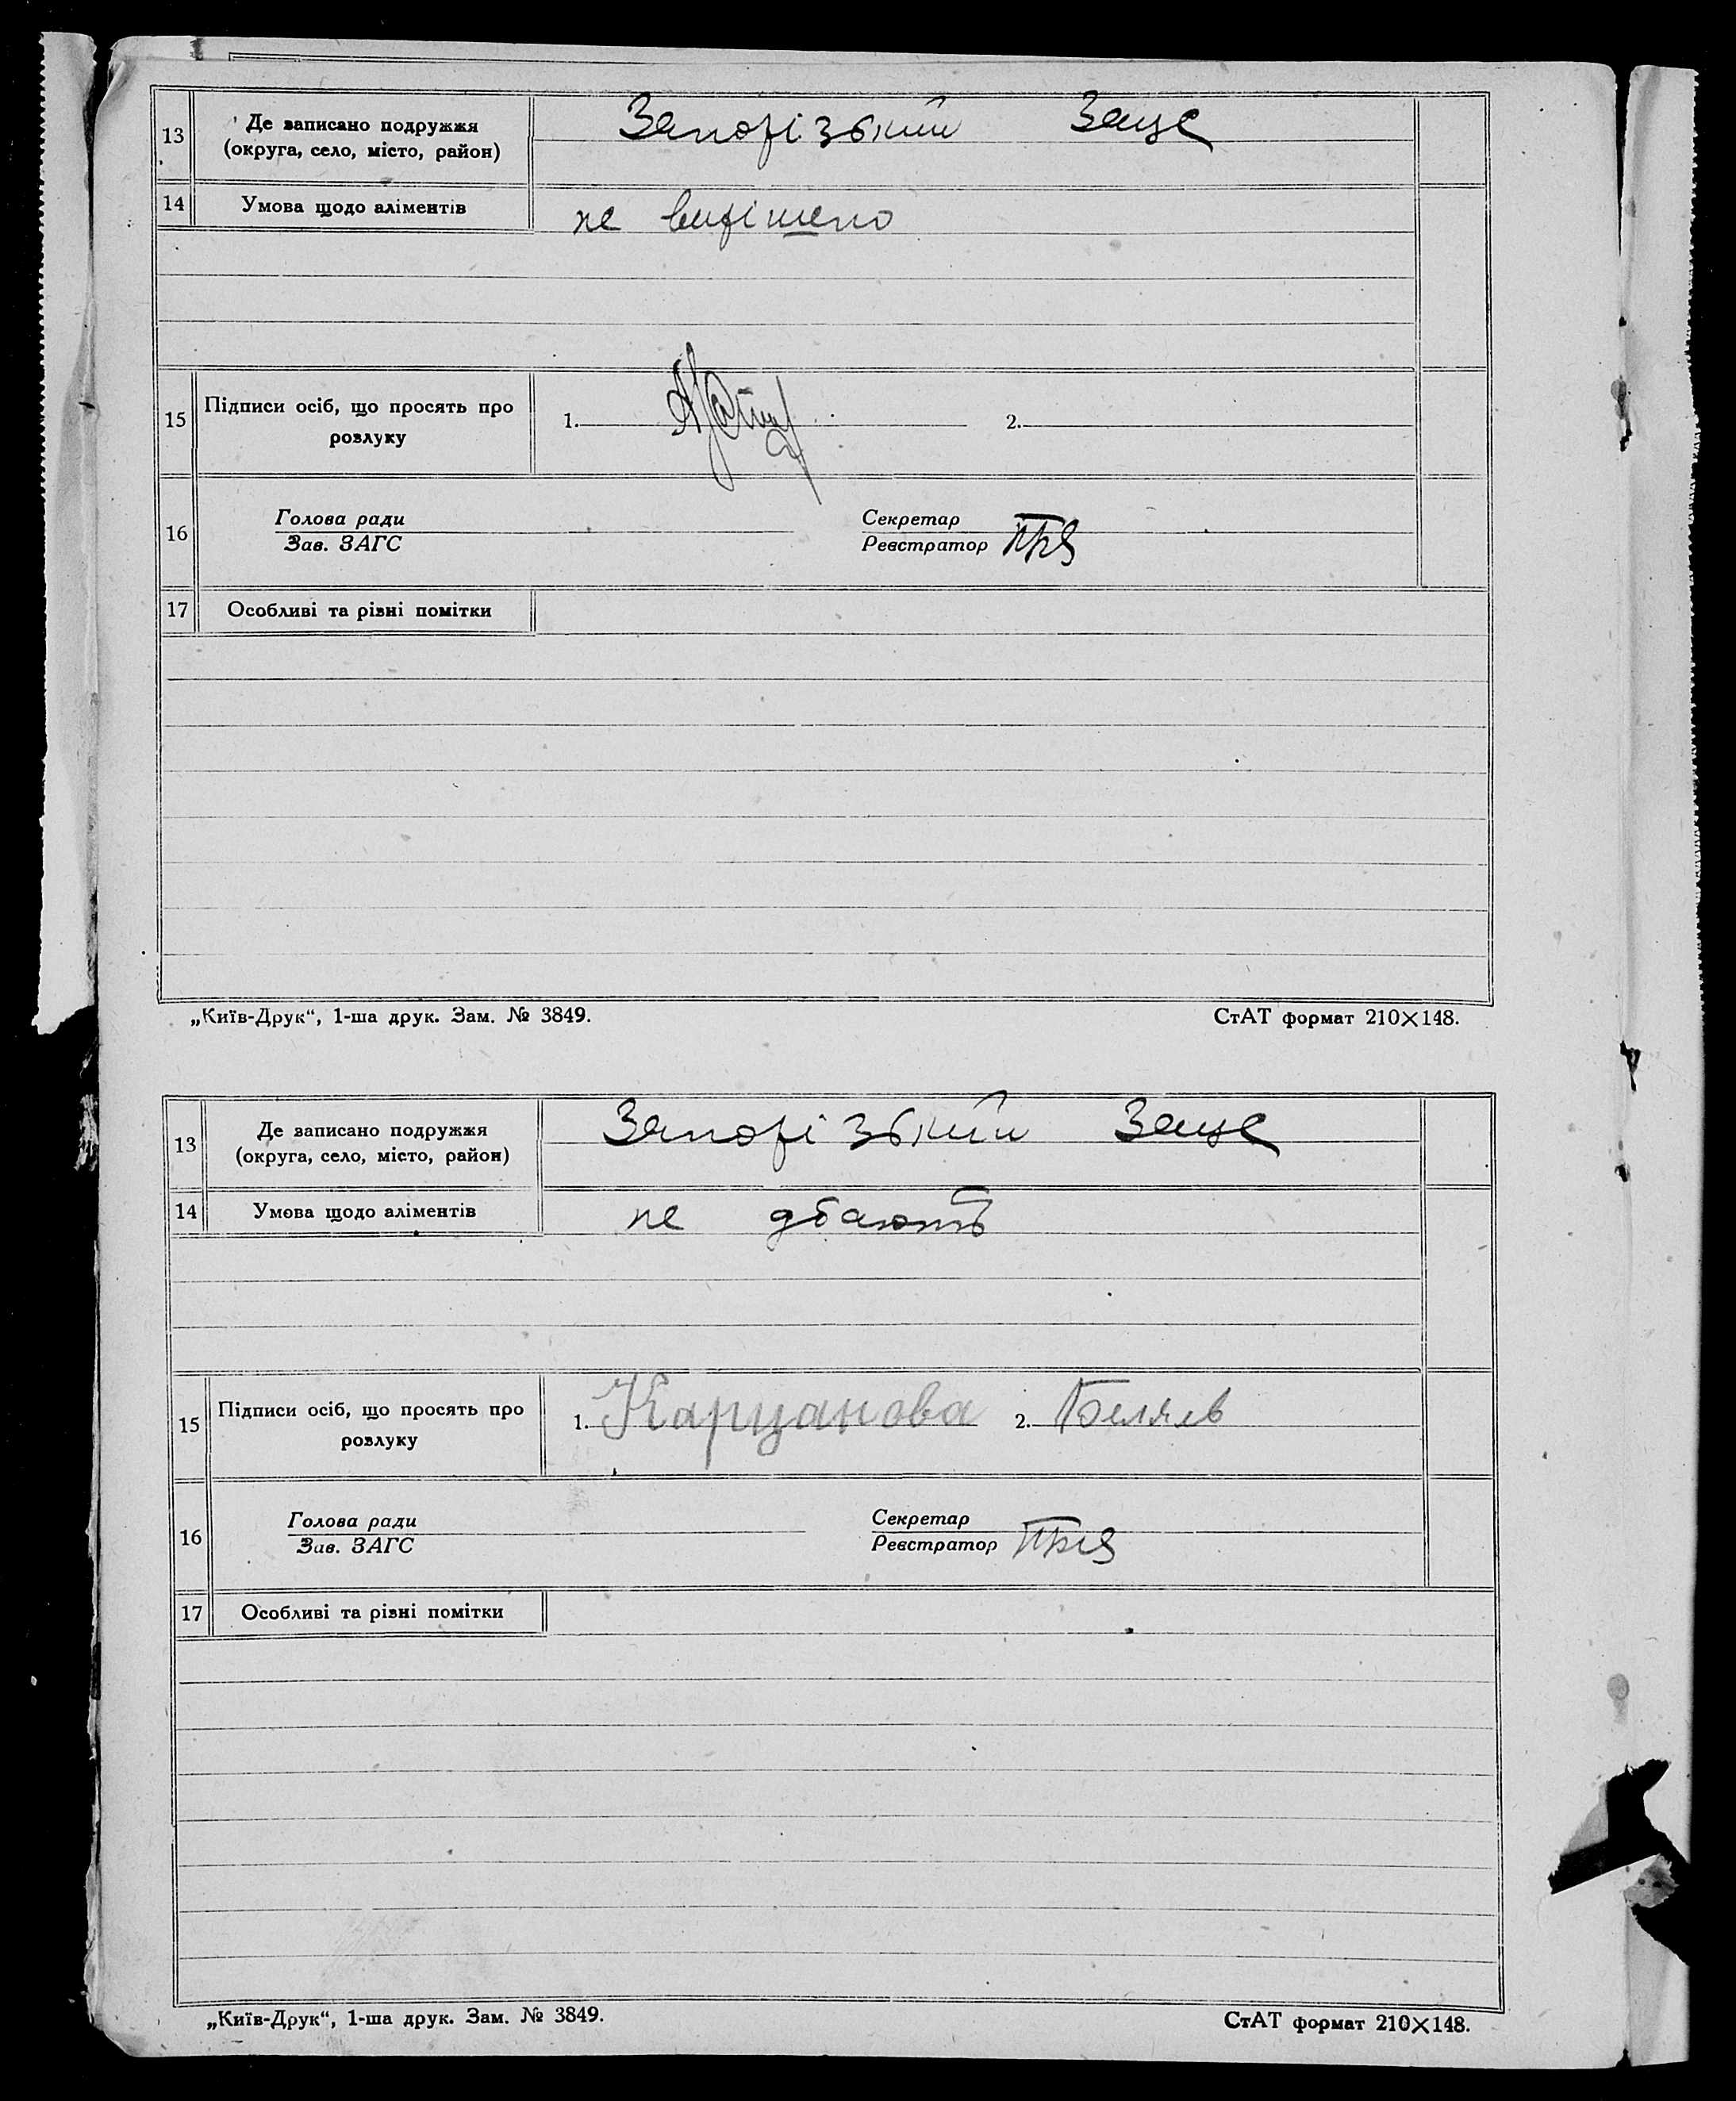 13
Де записано подружжя
(округа, село, місто, район)
Запорізький Загс
14
Умова щодо аліментів
не вирішено
15
Підписи осіб, що просять про
розлуку
1.
2.
16
Голова ради
Зав. ЗАГС
Секретар
Реєстратор
17
Особливі та різні помітки
„Київ-Друк“, 1-ша друк. Зам. № 3849.
СтАТ формат 210×148.
13
Де записано подружжя
(округа, село, місто, район)
Запорізький Загс
14
Умова щодо аліментів
не дбають
15
Підписи осіб, що просять про
розлуку
1. Карцанова
2. Беляев
16
Голова ради
Зав. ЗАГС
Секретар
Реєстратор
17
Особливі та різні помітки
„Київ-Друк“, 1-ша друк. Зам. № 3849.
СтАТ формат 210×148.